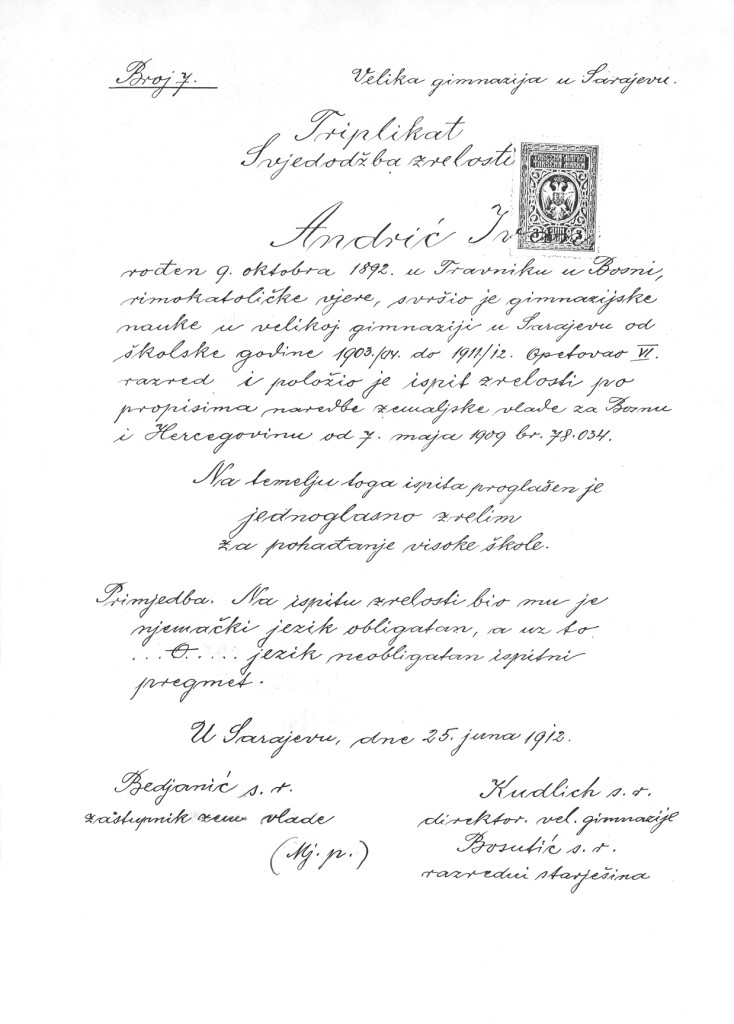 Broj 7.
Velika gimnazija u Sarajevu.
Triplikat
Svjedodžba zrelosti
Andrić Iv
rođen 9. oktobra 1892. u Travniku u Bosni,
rimokatoličke vjere, svršio je gimnazijske
nauke u velikoj gimnaziji u Sarajevu od
školske godine 1903./04. do 1911/12. Opetovao VI.
razred i položio je ispit zrelosti po
propisima naredbe zemaljske vlade za Bosnu
i Hercegovinu od 7. maja 1909 br. 78.034.
Na temelju toga ispita proglašen je
jednoglasno zrelim
za pohađanje visoke škole.
Primjedba. Na ispitu zrelosti bio mu je
njemački jezik obligatan, a uz to
...O..... jezik neobligatan ispitni
pregmet.
U Sarajevu, dne 25. juna 1912.
Bedjanić s. r.
zastupnik zem vlade
(Mj. p.)
Kudlich s. r.
direktor. vel. gimnazije
Bosutić s. r.
razredni starješina